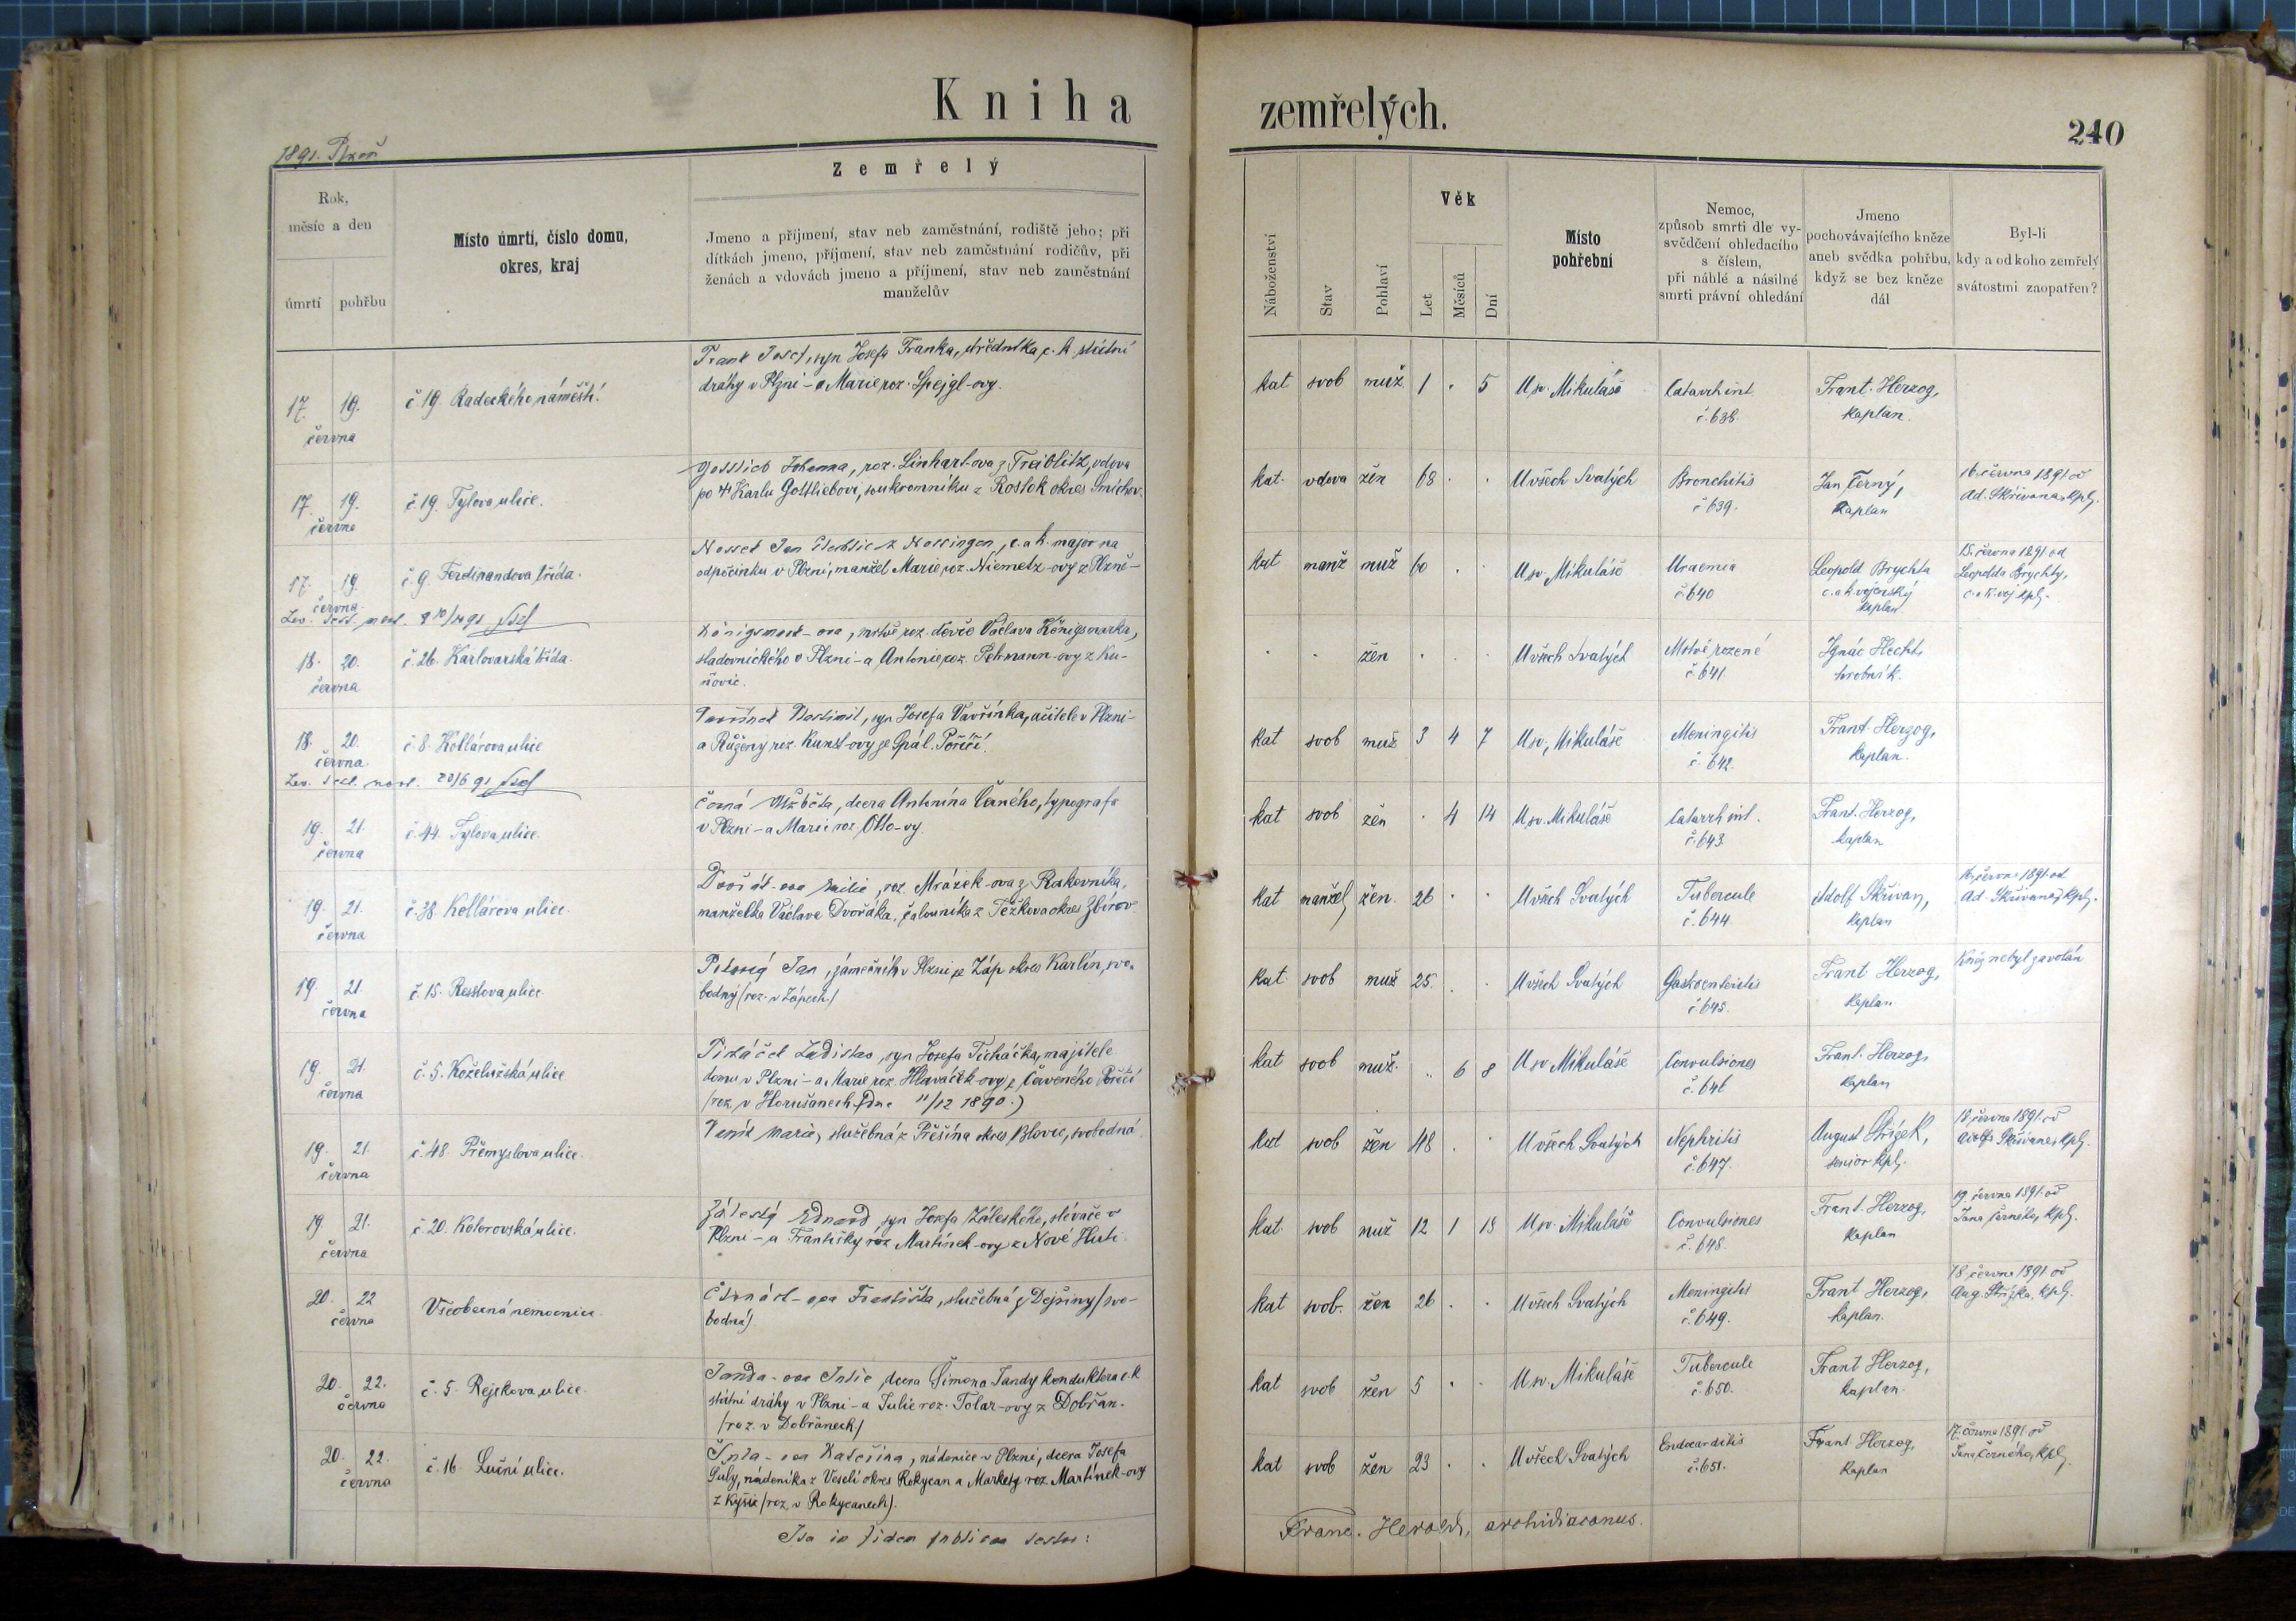 Kniha zemřelých.
240
1891. Plzeň
Zemřelý
Rok,
měsíc a den
úmrtí
pohřbu
Místo úmrtí, číslo domu,
okres, kraj
Jmeno a příjmení, stav neb zaměstnání, rodiště jeho; při
dítkách jmeno, příjmení, stav neb zaměstnání rodičův, při
ženách a vdovách jmeno a příjmení, stav neb zaměstnání
manželův
Náboženství
Stav
Pohlaví
Věk
Let
Měsíců
Dní
Místo
pohřební
Nemoc,
způsob smrti dle vy-
svědčení ohledacího
s číslem,
při náhlé a násilné
smrti právní ohledání
Jmeno
pochovávajícího kněze
aneb svědka pohřbu,
když se bez kněze
dál
Byl-li
kdy a od koho zemřelý
svátostmi zaopatřen?
17. 19. června
č 19. Radeckého náměstí.
Frank Josef, syn Josefa Franka, úředníka c. k. státní
dráhy v Plzni - a Marie roz. Spejgl-ovy.
kat svob muž 1 . 5 U sv. Mikuláše
Catarrh int.
č. 638.
Frant. Herzog,
kaplan.
17. 19. června
č. 19. Tylova ulice.
Gottlieb Johanna, roz. Linhart-ova z Treiblitz, vdova
po † Karlu Gottliebovi, soukromníku z Rostok okres Smíchov.
kat. vdova žen 68 . . U všech Svatých
Bronchitis
č 639.
Jan Černý,
kaplan
16. června 1891 od
Ad. Skřivana, kpl.
17. 19. června
č. 9. Ferdinandova třída.
odpočinku v Plzni, manžel Marie roz. Niemetz-ovy z Plzně-
kat manž muž 60 . . U sv. Mikuláše
Uraemia
č. 640
Leopold Brychta
c. a k. vojenský
kaplan
15. června 1891 od
Leopolda Brychty,
c. a k. voj. kpl.
18. 20. června
č. 26. Karlovarská třída.
Königsmark-ova, mrtvě roz. děvče Václava Königsmarka,
sladovnického v Plzni - a Antonie roz. Pehmann-ovy z Ku-
. . žen . . . U všech Svatých
Mrtvě rozené
č. 641.
Ignác Hecht,
hrobník.
18. 20. června
č. 8. Kollárova ulice
Vavřínek Vlastimil, syn Josefa Vavřínka, učitele v Plzni-
a Růženy roz. Kunst-ovy ze Spál. Poříčí.
kat svob muž 3 4 7 U sv. Mikuláše
Meningitis
č. 642.
Frant. Herzog,
kaplan.
19. 21. června
č. 44. Tylova ulice.
Černá Alžběta, dcera Antonína Černého, typografa
v Plzni - a Marie roz. Otto-vy.
kat svob žen . 4 14 U sv. Mikuláše
Catarrh int.
č. 643.
Frant. Herzog,
kaplan
19. 21. června
č. 38. Kollárova ulice.
Dvořák-ova Emilie, roz. Mrázek-ova z Rakovníka,
manželka Václava Dvořáka, čalouníka z Těškova okres Zbirov.
kat manžel žen. 26 . . U všech Svatých
Tubercule
č. 644.
Adolf Skřivan,
kaplan
16. června 1891 od
Ad. Skřivana, kpl.
19. 21. června
č. 15. Resslova ulice.
Jan, zámečník v Plzni ze Záp okres Karlín, svo-
bodný (roz. v Zápech)
kat svob muž 25. . . U všech Svatých
Gastroenteritis
č. 645.
Frant Herzog,
kaplan.
Kněz nebyl zavolán
19. 21. června
č. 5. Koželužská ulice
Ticháček Ladislav, syn Josefa Ticháčka, majitele
domu v Plzni - a Marie roz. Hlaváček-ovy z Červeného Poříčí
(roz. v Horušanech dne 11/12 1890.)
kat svob muž. .. 6 8 U sv. Mikuláše
Convulsiones
č. 646
Frant. Herzog,
kaplan
19. 21. června
č. 48. Přemyslova ulice.
Marie, služebná z Přešína okres Blovic, svobodná.
kat svob žen 48 . . U všech Svatých
Nephritis
č. 647.
August Střízek,
senior kpl.
18. června 1891. od
Adolfa Skřivana, kpl.
19. 21. června
č. 20. Kolerovská ulice.
Záleský Eduard, syn Josefa Záleského, slévače v
Plzni - a Františky roz. Martínek-ovy z Nové Huti.
kat. svob muž 12 1 18 U sv. Mikuláše
Convulsiones
č. 648.
Frant. Herzog,
kaplan
19. června 1891. od
Jana Černého, kpl.
20. 22 června
Všeobecná nemocnice.
Františka, služebná z Dejšiny (svo-
bodná)
kat svob. žen 26 . . U všech Svatých
Meningitis
č. 649.
Frant Herzog,
kaplan.
18 června 1891 od
Aug. Střízka, kpl.
20. 22. června
č. 5. Rejskova ulice.
Janda-ova Julie, dcera Šimona Jandy konduktera c. k
státní dráhy v Plzni - a Julie roz. Tolar-ovy z Dobřan.
(roz. v Dobřanech)
kat svob žen 5 . . U sv. Mikuláše
Tubercule
č. 650.
Frant Herzog,
kaplan.
20. 22. června
č. 16. Luční ulice.
Kateřina, nádenice v Plzni, dcera Josefa
nádeníka z Veselí okres Rokycan a Markety roz. Martínek-ovy
z Kyšic (roz. v Rokycanech).
kat svob žen 23 . . U všech Svatých
Endocarditis
č. 651.
Frant. Herzog,
kaplan
17. června 1891. od
Jana Černého, kpl.
Ita in fidem publicam testor:
Franc. Herold, archidiaconus.